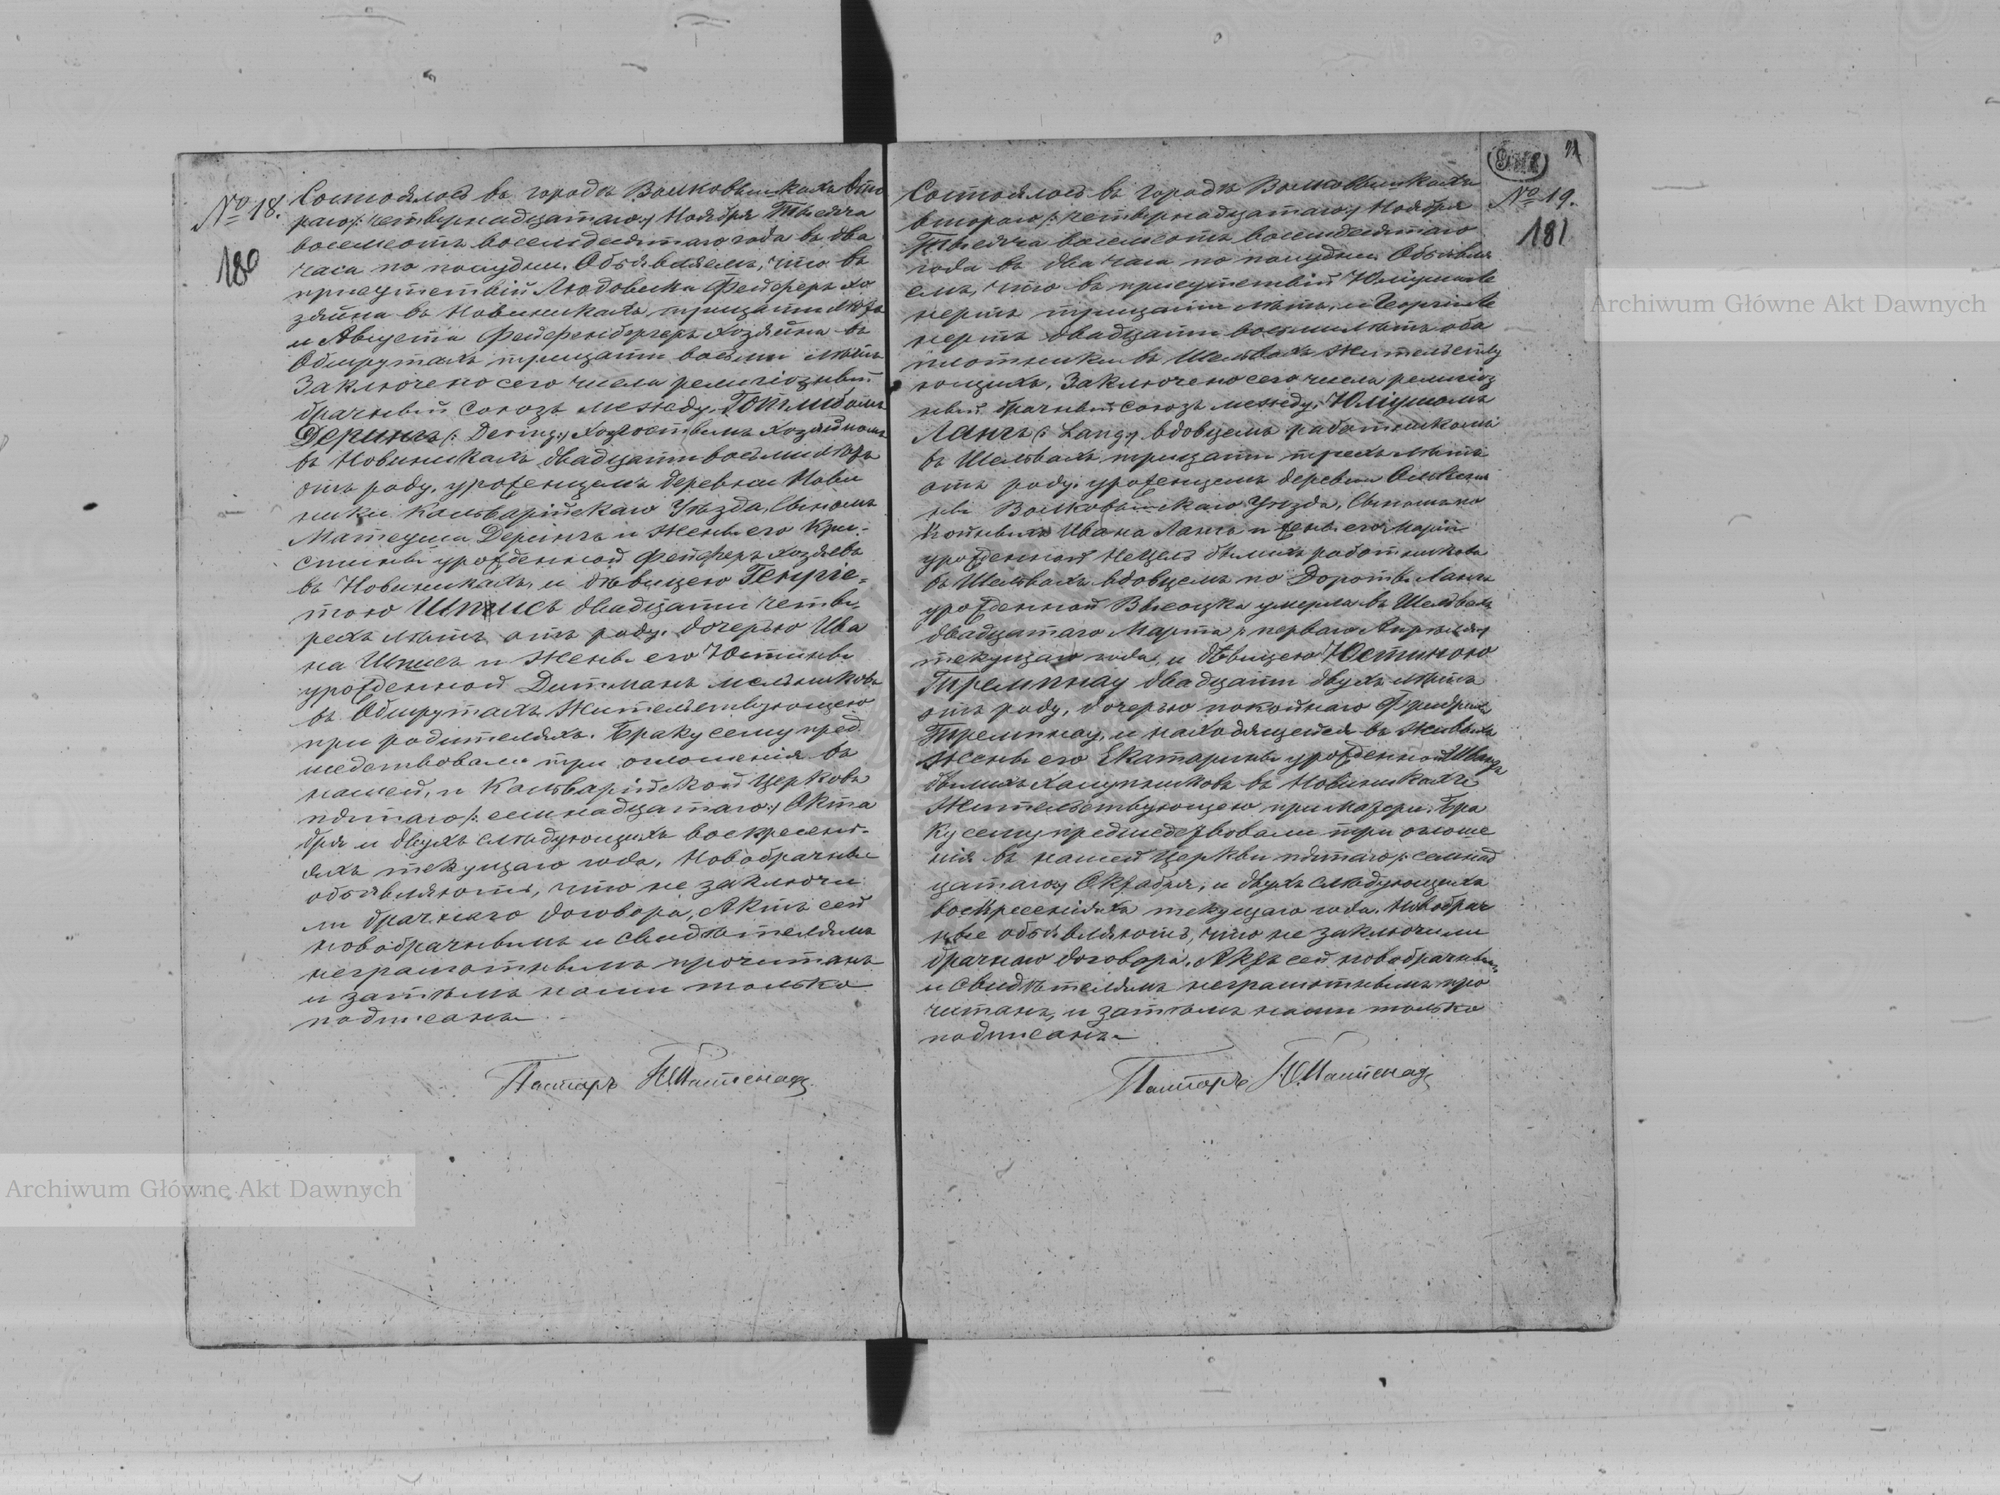 № 18.
180
Состоялось въ городѣ Волковышкахъ вто
раго /: четырнадцатаго :/ Ноября Тысяча
восемсотъ восемдесятаго года въ два
часа по полудни. Объявляемъ, что въ
присутствіи Людовика Фейферъ хо
зяина въ Новиникахъ тридцати лѣтъ
и Августа Фейфенбергеръ хозяина въ
Обшрутахъ тридцати восьми лѣтъ
Заключено сего числа религіозный
брачный союзъ между, Готлибомъ
Дерингъ (: Dering :) холостымъ хозяиномъ
въ Новиникахъ двадцати восьми лѣтъ
отъ роду, урожденцемъ деревни Нови
ники Кальварійскаго Уѣзда, Сыномъ
Матеуша Дерингъ и Жены его Кри-
стины урожденной Фейферъ хозяевъ
въ Новиникахъ, и дѣвицею Генріе-
тою Шписъ двадцати четы
рехъ лѣтъ отъ роду, дочерью Ива
на Шписъ и Жены его Юстины
урожденной Дитманъ мельниковъ
въ Обшрутахъ жительствующею
при родителяхъ. Браку сему пред
шедствовали три оглошенія въ
нашей, и Кальварійской Церковѣ
пятаго /: семнадцатаго :/ Окта
бря и двухъ слѣдующихъ воскресені-
яхъ текущаго года. Новобрачные
объявляютъ, что не заключи
ли брачнаго договора, Актъ сей
новобрачнымъ и свидѣтелямъ
неграмотнымъ прочитанъ
и затѣмъ нами только
подписанъ
Пасторъ
71
№ 19.
181
Состоялось въ городѣ Волковышкахъ
втораго /: четырнадцатаго :/ Ноября
Тысяча восемсотъ восемдесятаго
года въ два часа по полудни. Объявля
емъ, что въ присутствіи
тридцати лѣтъ, и
двадцати восьми лѣтъ оба
плотники въ Шельвахъ жительству
ющихъ, Заключено сего числа религіоз
ный брачный союзъ между, Юліушомъ
Лангъ (: Lang :) вдовцемъ работникомъ
въ Шельвахъ тридцати трехъ лѣтъ
отъ роду, урожденцемъ деревни
Волковышскаго Уѣзда, Сыномъ по
койныхъ Ивана Лангъ и жены его Маріи
урожденной Нецель бывшихъ работниковъ
въ Шельвахъ вдовцемъ по Доротѣ Лангъ
урожденной Высоцка умерла въ Шельвахъ
двадцатаго Марта /: перваго Апрѣля :/
текущаго года, и дѣвицею Юстиною
Тремпнау двадцати двухъ лѣтъ
отъ роду, дочерью покойнаго Фридриха
Тремпнау, и находящейся въ живыхъ
Жены его Екатарины урожденной
бывшихъ халупниковъ въ Новиникахъ
жительствующею при матери. Бра
ку сему предшедствовали три оглоше
нія въ нашей Церкви пятаго /: семнад
цатаго :/ Октября, и двухъ слѣдующихъ
воскресеніяхъ текущаго года. Новобрач
ные объявляютъ, что не заключили
брачнаго договора, Актъ сей новобрачнымъ
и свидѣтелямъ неграмотнымъ про
читанъ, и затѣмъ нами только
подписанъ
Пасторъ
Archiwum Główne Akt Dawnych
Archiwum Główne Akt Dawnych